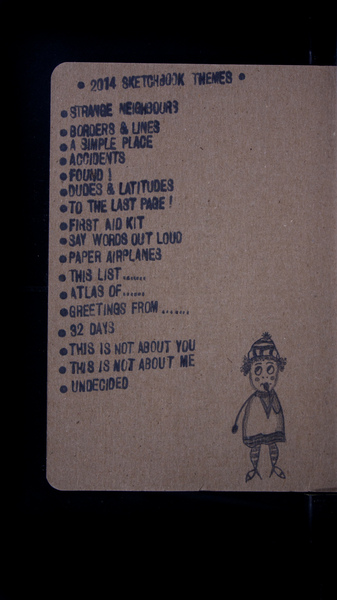 • 2014 SKETCHBOOK THEMES •
• STRANGE NEIGHBOURS
• BORDERS & LINES
• A SIMPLE PLACE
• ACCIDENTS
• FOUND!
• DUDES & LATITUDES
• TO THE LAST PAGE!
• FIRST AID KIT
• SAY WORDS OUT LOUD
• PAPER AIRPLANES
• THIS LIST......
• ATLAS OF......
• GREETINGS FROM.......
• 32 DAYS
• THIS IS NOT ABOUT YOU
• THIS IS NOT ABOUT ME
• UNDECIDED